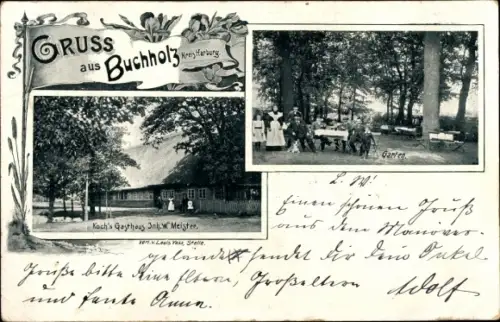 GRUSS
aus Buchholz
Kreis Harburg.
Koch's Gasthaus, Inh. W. Meister.
Garten.
Verl. v. Louis Voss, Stelle.
L. W!
Einen schönen Gruß
aus dem Manover-
gelände sendet Dir dein Onkel
Adolf
Grüße bitte deine Eltern, Großeltern
und Tante Anna.